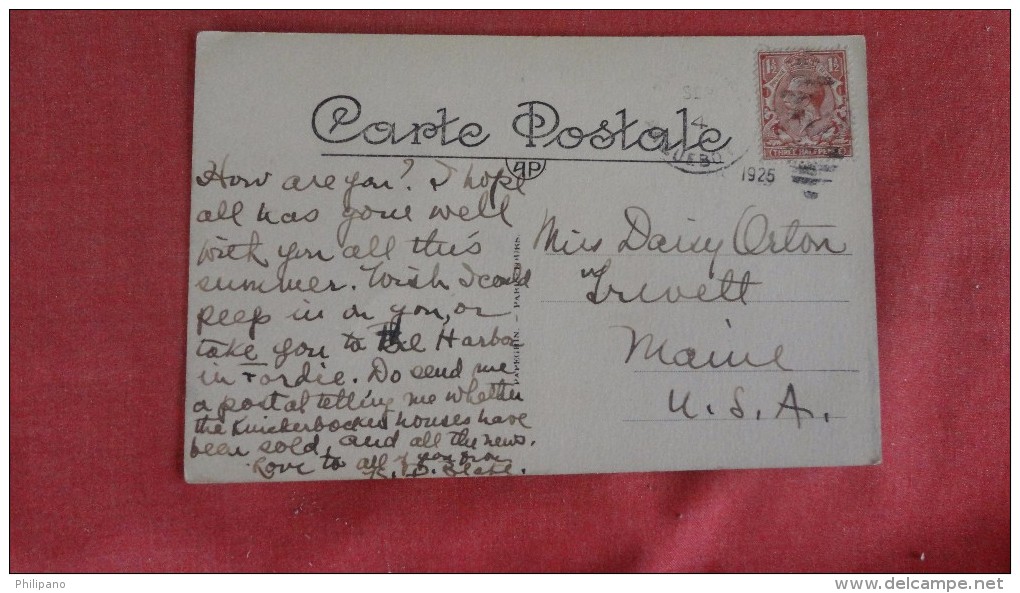 Carte Postale
AP
SE
4
1925
1½ 1½
THREE HALF PENCE
How are you? I hope
all has gone well
with you all this
summer. Wish I could
peep in on you, or
take you to the Harbor
in Fordie. Do send me
a postal telling me whether
the Knickerbocker houses have
been sold, and all the news.
Love to all of you from
PAPEGHIN. - PARIS-TOURS.
Miss Daisy Orton
Trevett
Maine
U. S. A.
Philipano
www.delcampe.net